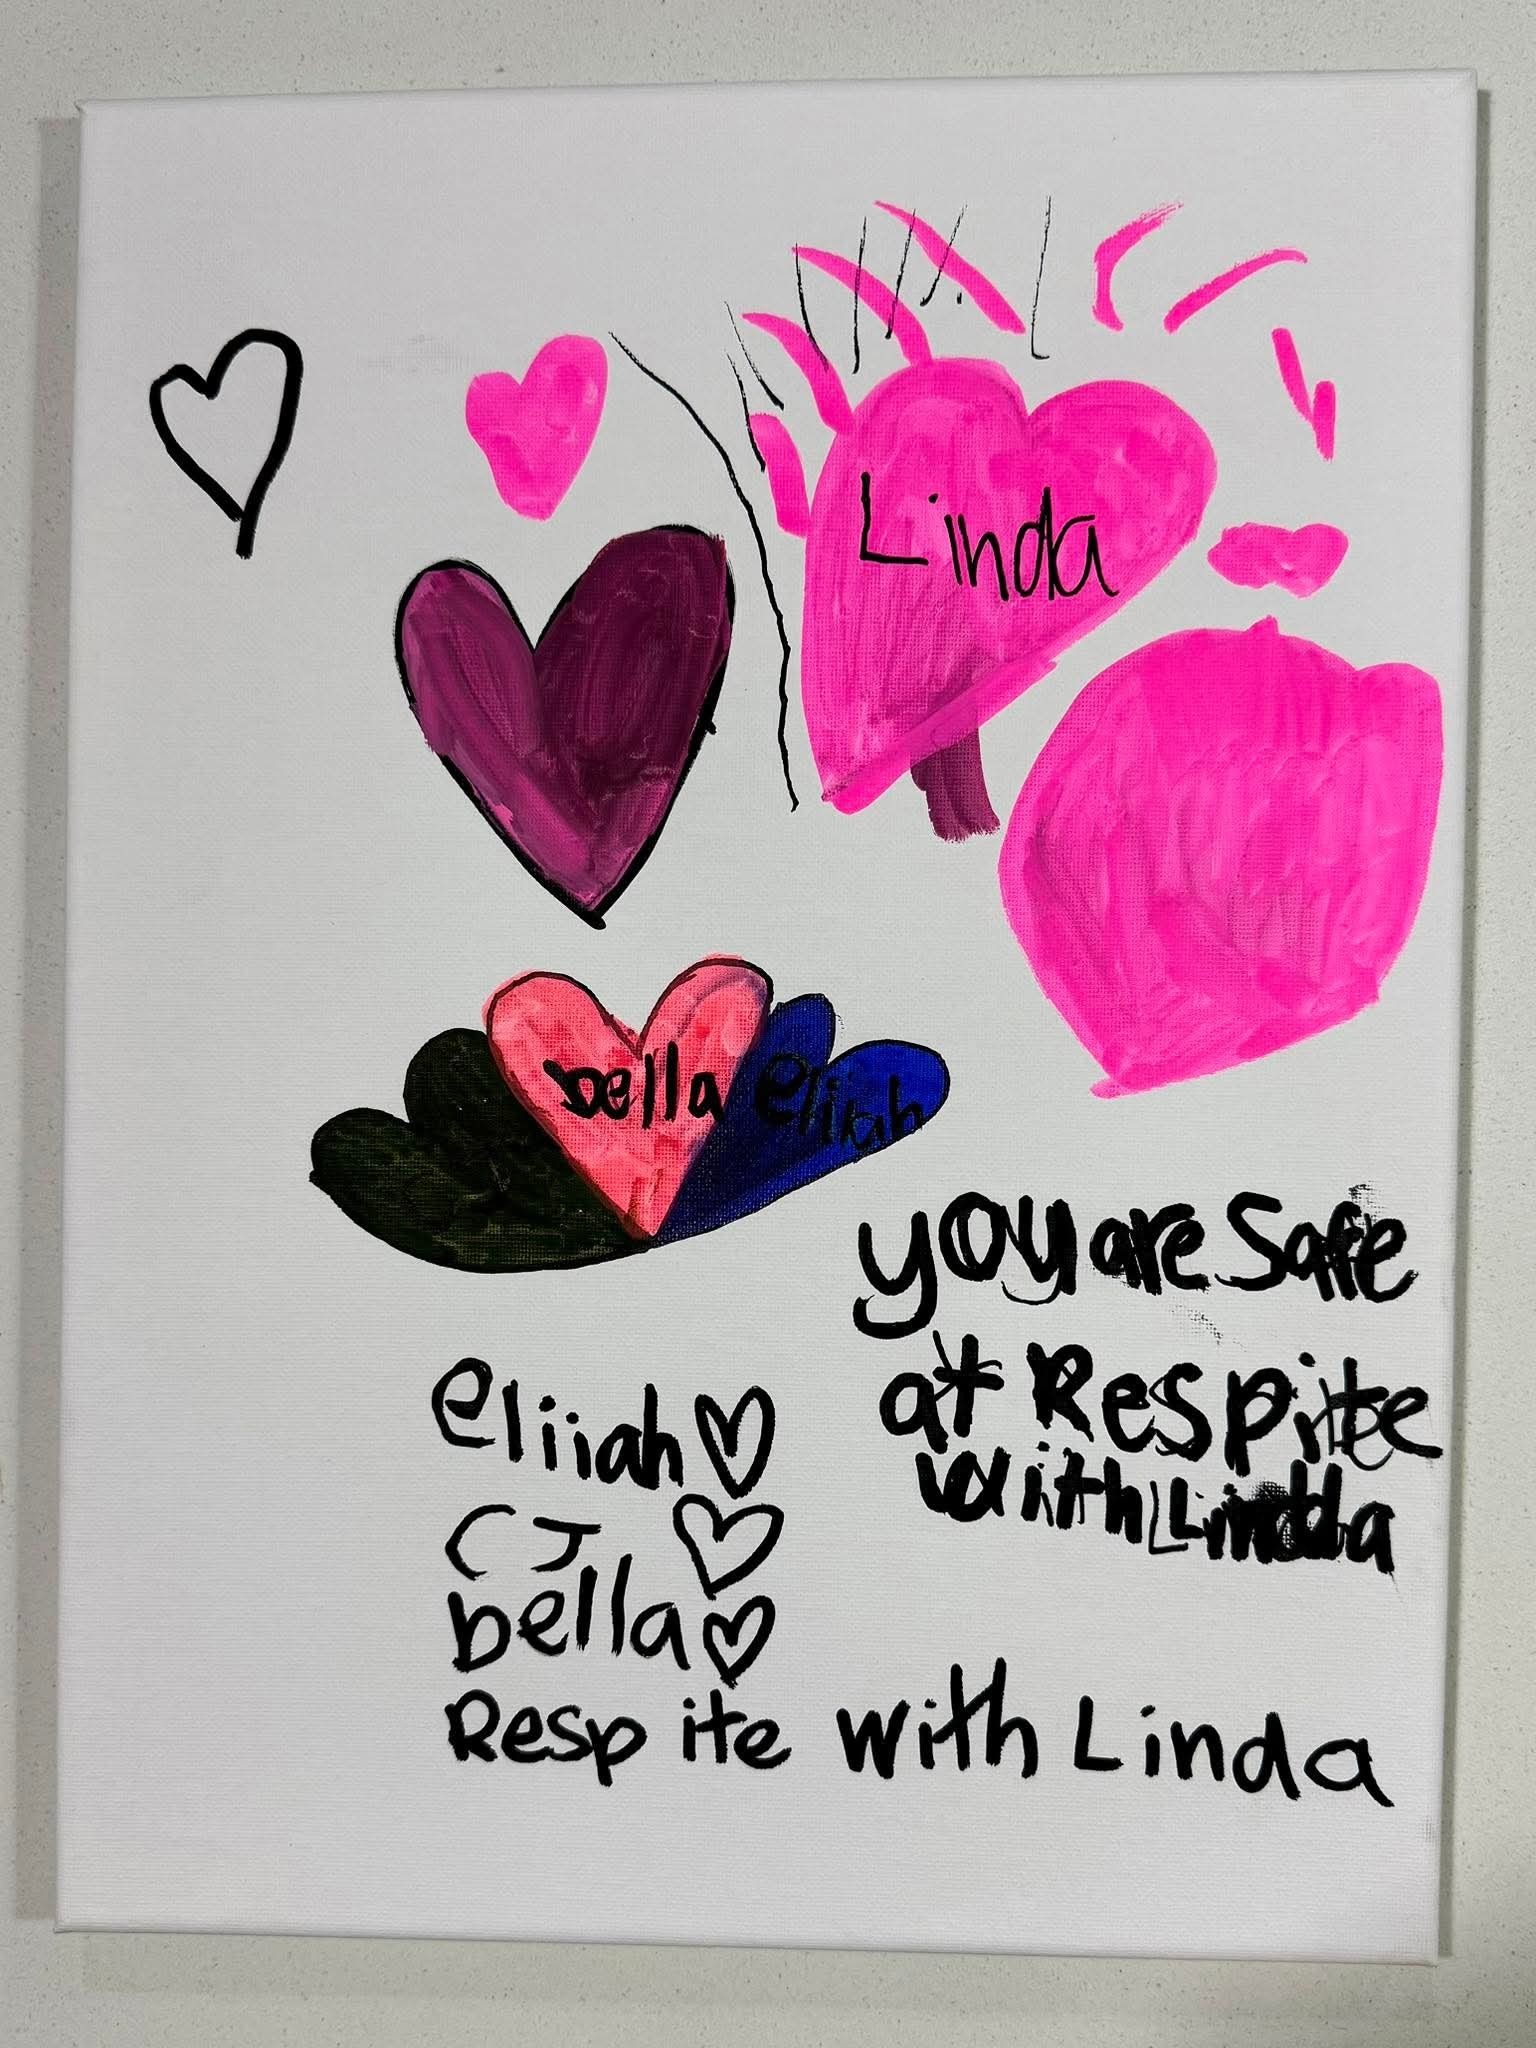 Linda
bella elijah
you are Safe
at Respite
with Linda
elijah
CJ
bella
Respite with Linda